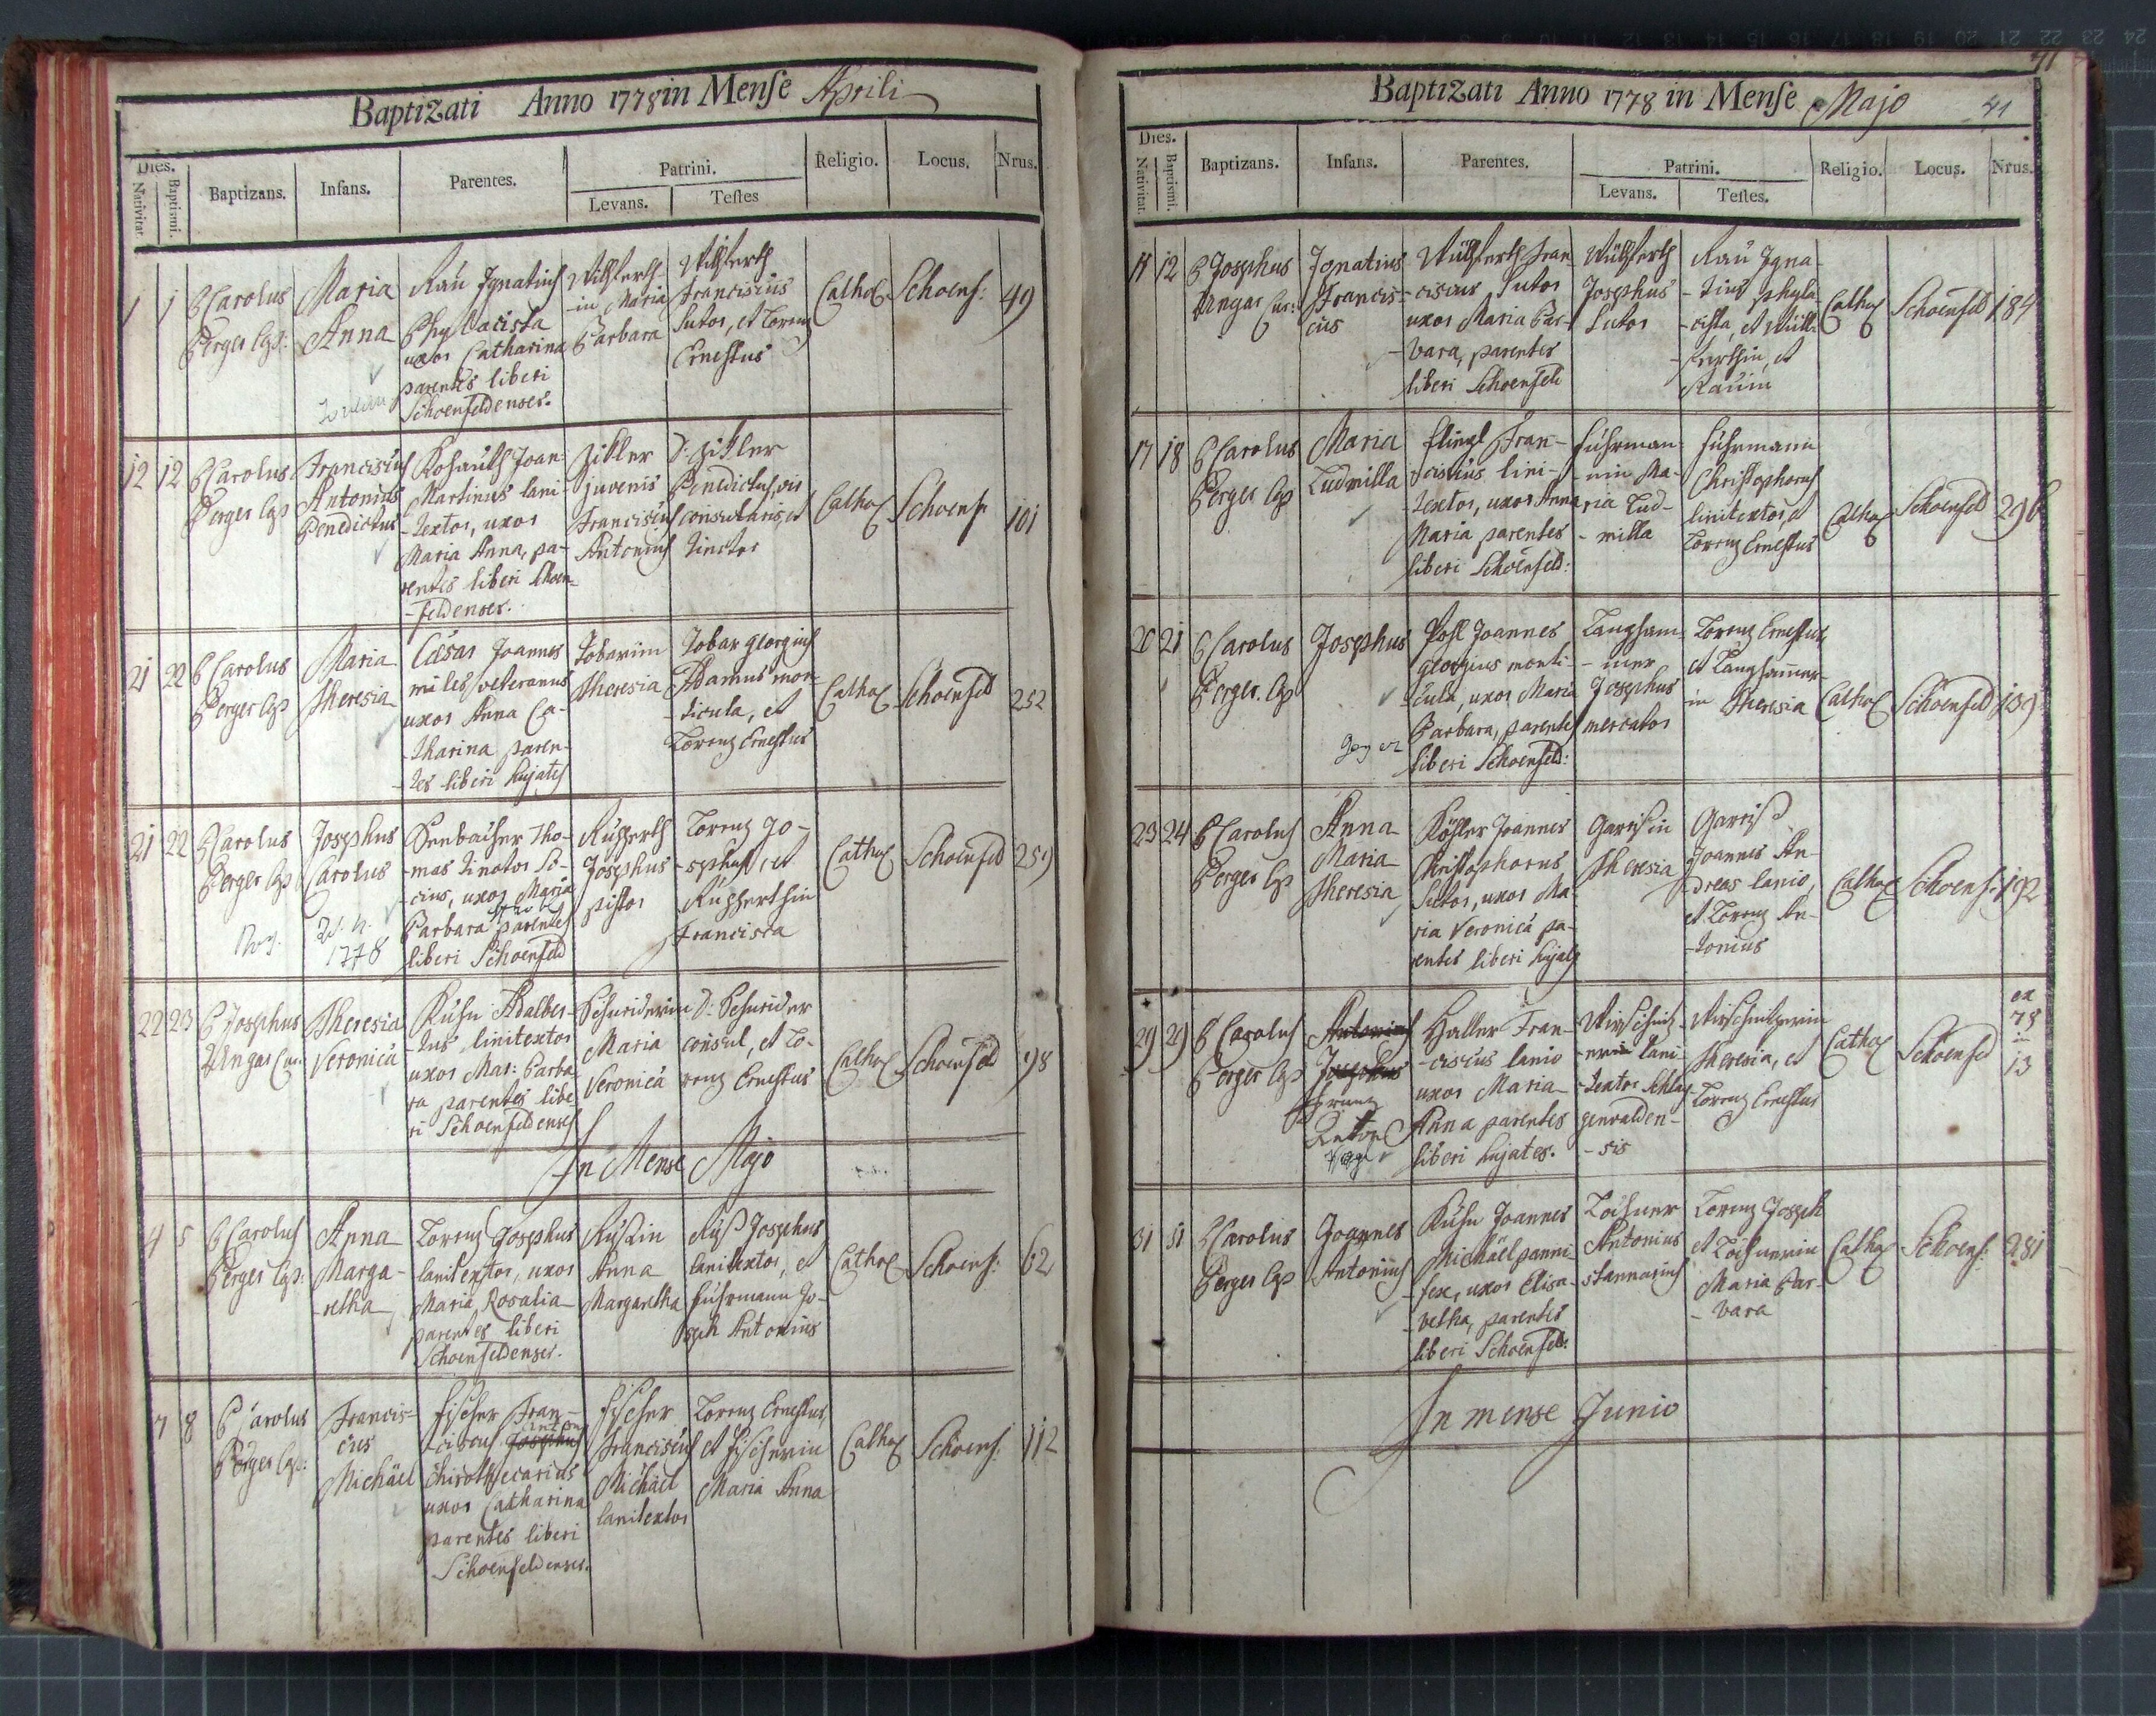 Baptizati Anno 1778 in Mense Aprili
Dies.
Nativitat.
Baptismi.
Baptizans.
Infans.
Parentes.
Patrini.
Levans.
Testes
Religio.
Locus.
Nrus.
1
1
P Carolus
Berger Cap:
Maria
Anna
Rau Ignatius
Phylacista
uxor Catharina
parentes liberi
Schoenfeldenses.
in Maria
Barbara
Franciscus
Sutor, et Lorenz
Ernestus
Cathol
Schoenf:
49
12
12
P Carolus
Berger Cap
Franciscus
Antonius
Benedictus
Kohauth Joan
Martinus lani-
-textor, uxor
Maria Anna, pa-
rentes liberi Schoen-
-feldenses.
Zitler
juvenis
Franciscus
Antonius
D. Zitler
Benedictus, vir
consularis, et
tinctor
Cathol
Schoenf
101
21
22
P Carolus
Berger Cap
Maria
Theresia
Cäsar Joannes
miles veteranus
uxor Anna Ca-
-tharina paren-
-tes liberi hujates
Tobarin
Theresia
Tobar Georgius
Adamus mon-
-ticula, et
Lorenz Ernestus
Cathol
Schoenfeld
252
21
22
P Carolus
Berger Cap
Josephus
Carolus
1778
Thom-
-mas tinctor So-
-cius, uxor Maria
Barbara parentes
liberi Schoenfeld
Rupperth
Josephus
pistor
Lorenz Jo-
-sephus, et
Rupperthin
Francisca
Cathol
Schoenfeld
259
22
23
P Josephus
Ungar Cur:
Theresia
Veronica
Kuhn Adalber-
-tus linitextor
uxor Mar: Barba
ra parentes libe
ri Schoenfeldenses
Schneiderin
Maria
Veronica
D. Schneider
consul, et Lo-
renz Ernestus
Cathol
Schoenfeld
98
In Mense Majo
4
5
P Carolus
Berger Cap:
Anna
Marga-
-retha
Lorenz Josephus
lanitextor, uxor
Maria Rosalia
parentes liberi
Schoenfeldenses.
Rußin
Anna
Margaretha
Ruß Josephus
lanitextor, et
Fuhrmann Jo-
seph Antonius
Cathol
Schoenf:
62
7
8
P Carolus
Berger Cap:
Francis-
cus
Michäel
Fischer Fran-
-ciscus Josephus
chirothecarius
uxor Catharina
parentes liberi
Schoenfeldenses.
Fischer
Franciscus
Michäel
lanitextor
Lorenz Ernestus,
et Fischerin
Maria Anna
Cathol
Schoenf:
112
41
Baptizati Anno 1778 in Mense Majo
41
Dies.
Nativitat.
Baptismi.
Baptizans.
Infans.
Parentes.
Patrini.
Levans.
Testes.
Religio.
Locus.
Nrus.
11
12
P Josephus
Ungar Cur:
Ignatius
Francis-
cus
Fran-
-ciscus Sutor
uxor Maria Bar-
-bara, parentes
liberi Schoenfeld
Josephus
Sutor
Rau Igna-
-tius phyla-
-cista, et
Rauin
Cathol
Schoenfeld
184
17
18
P Carolus
Berger Cap
Maria
Ludmilla
Flingl Fran-
-ciscus lini-
-textor, uxor Anna
Maria parentes
liberi Schoenfeld:
Fuhrman-
nin Ma-
ria Lud-
-milla
Fuhrmann
Christophorus
linitextor, et
Lorenz Ernestus
Cathol
Schoenfeld
296
20
21
P Carolus
Berger Cap
Josephus
Post Joannes
Georgius monti-
cula, uxor Maria
Barbara, parentes
liberi Schoenfeld:
Langham-
-mer
Josephus
mercator
Lorenz Ernestus,
et Langhammer-
in Theresia
Cathol
Schoenfeld
139
23
24
P Carolus
Berger Cap
Anna
Maria
Theresia
Joannes
Christophorus
Sutor, uxor Ma-
ria Veronica pa-
rentes liberi hujates
Garrißin
Theresia
Garriß
Joannes An-
-dreas lanio,
et Lorenz An-
-tonius
Cathol
Schoenf:
192
29
29
P Carolus
Berger Cap
Antonius
Josephus
Franz
Anton
Haller Fran-
-ciscus lanio
uxor Maria
Anna parentes
liberi hujates.
lani-
-textor Schlag-
genwalden-
-sis
Theresia, et
Lorenz Ernestus
Cathol
Schoenfeld
ex
78
in
13
31
31
P Carolus
Berger Cap
Joannes
Antonius
Kuhn Joannes
Michäel panni-
-fex, uxor Elisa-
-betha, parentes
liberi Schoenfeld:
Löchner
Antonius
stannarius
Lorenz Joseph
et Löchnerin
Maria Bar-
-bara
Cathol
Schoenf:
281
In mense Junio